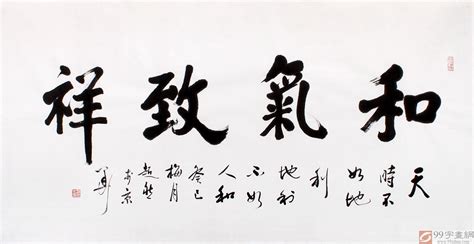 和氣致祥
天
時不
如地
利
地利
不如
人和
癸巳
梅月
99字畫網